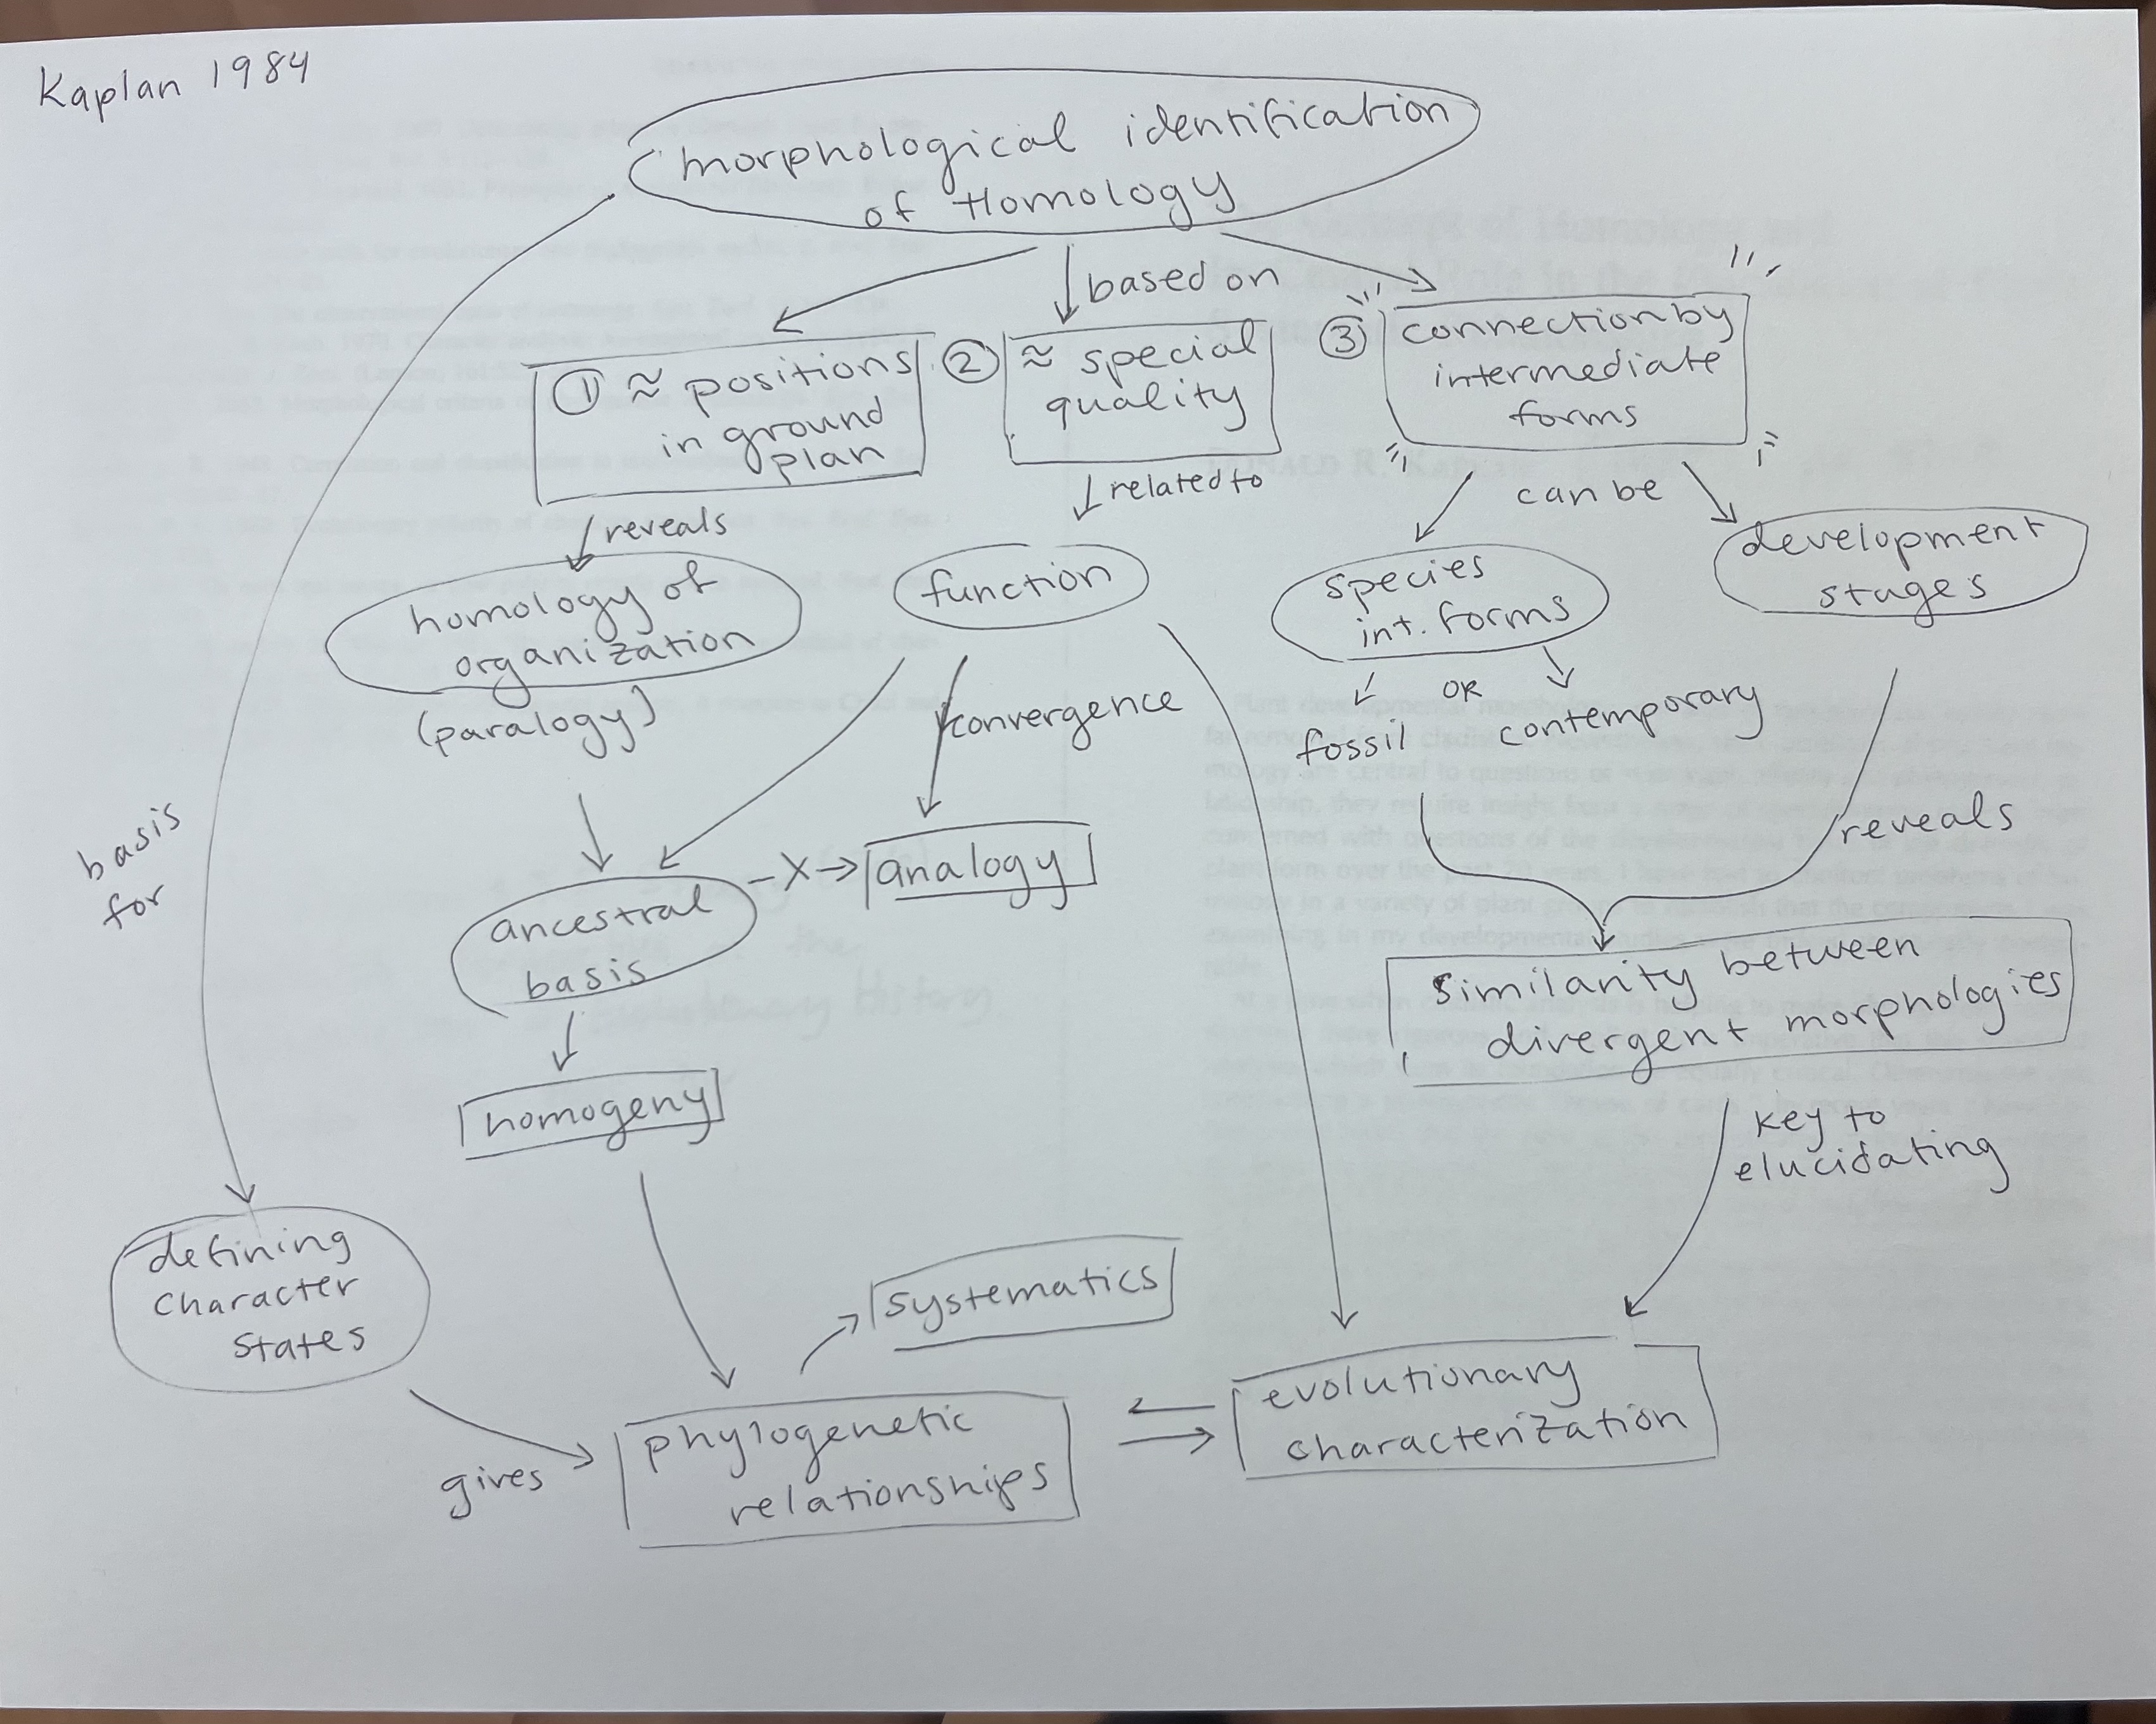 Kaplan 1984
morphological identification
of Homology
based on
① ≈ positions
in ground
plan
② ≈ special
quality
③ connection by
intermediate
forms
reveals
related to
can be
homology of
organization
(paralogy)
function
species
int. forms
development
stages
convergence
fossil
OR
contemporary
basis
for
reveals
ancestral
basis
-X→
analogy
similarity between
divergent morphologies
homogeny
key to
elucidating
defining
character
states
systematics
gives
phylogenetic
relationships
evolutionary
characterization